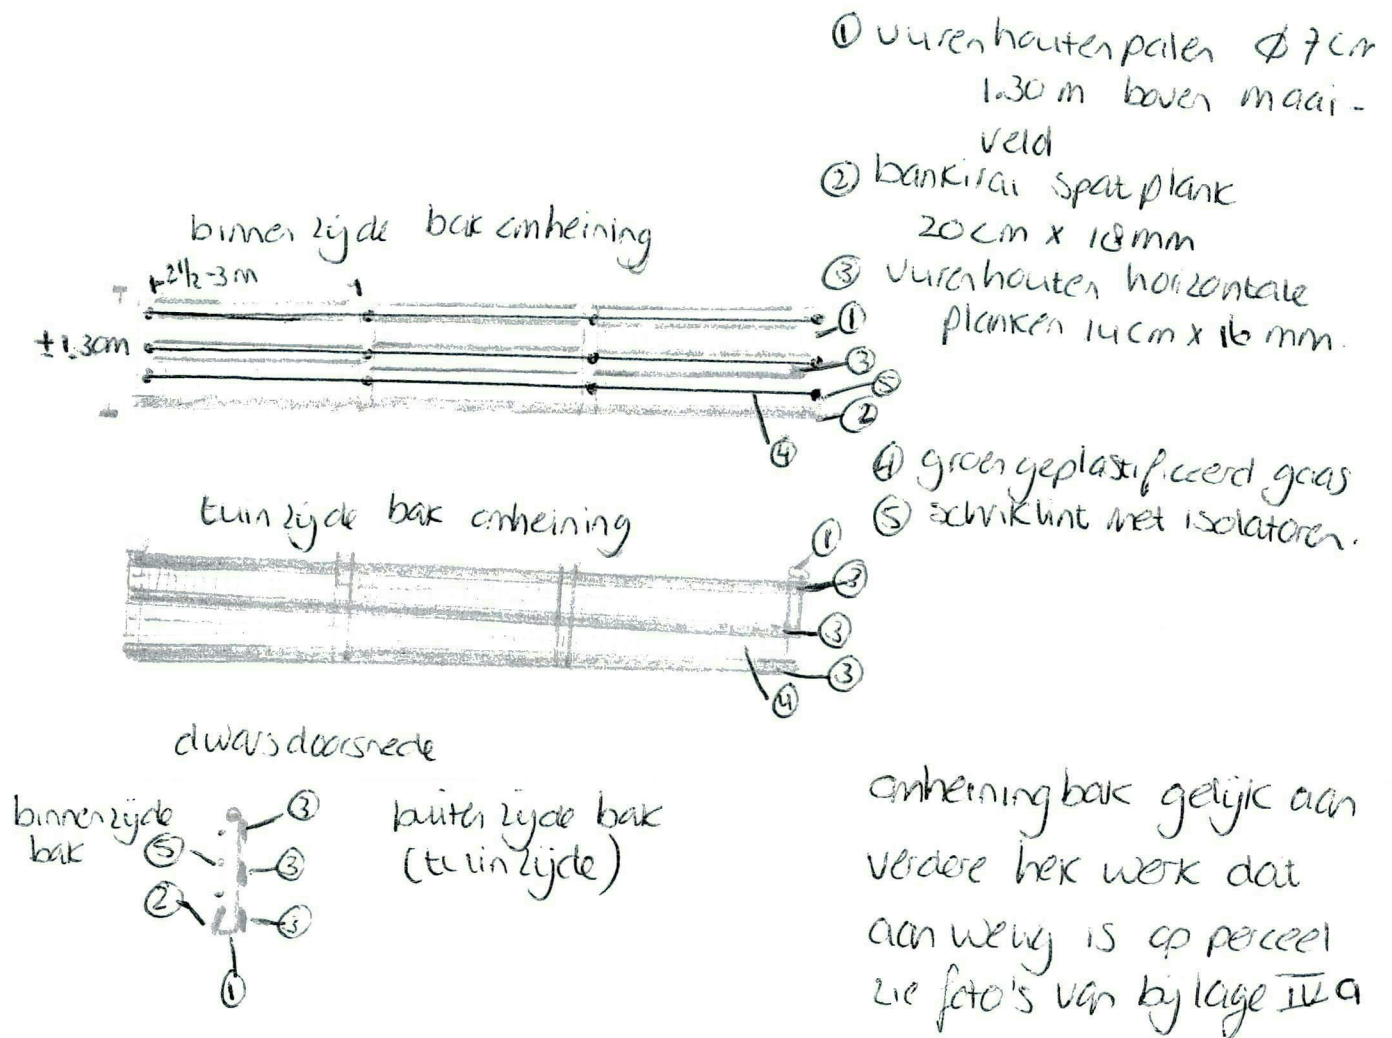 ① vurenhouten palen ϕ 7 cm
1.30 m boven maai-
veld
② bankirai spatplank
20 cm x 18 mm
③ vurenhouten horizontale
planken 14 cm x 16 mm.
④ groen geplastificeerd gaas
⑤ schriklint met isolatoren.
binnenzijde bak omheining
2½-3 m
±1.3cm
①
③
⑤
②
④
tuinzijde bak omheining
①
③
③
③
④
dwarsdoorsnede
binnenzijde
bak
⑤
②
③
③
③
①
buitenzijde bak
(tuinzijde)
omheining bak gelijk aan
verdere hek werk dat
aanwezig is op perceel
zie foto's van bijlage IV a